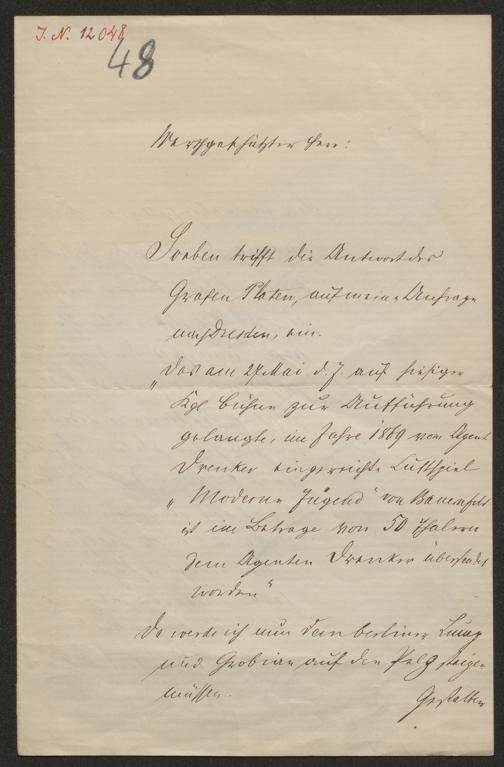 I. N. 12048
48
Werthgeschätzter Herr!
Soeben trifft die Antwort des
Grafen Platen, auf meine Anfrage
nach Dresden, ein.
„Das am 27 Mai d. J. auf hiesiger
Kgl Bühne zur Aufführung
gelangte, im Jahre 1869 vom Agent
Drenker eingereichte Lustspiel
„Moderne Jugend" von Bauernfeld
ist im Betrage von 50 Thalern
dem Agenten Drenker übersendet
worden"
Da werde ich nun dem berliner
und Grobian auf den Pelz steigen
müssen.
Gestatten